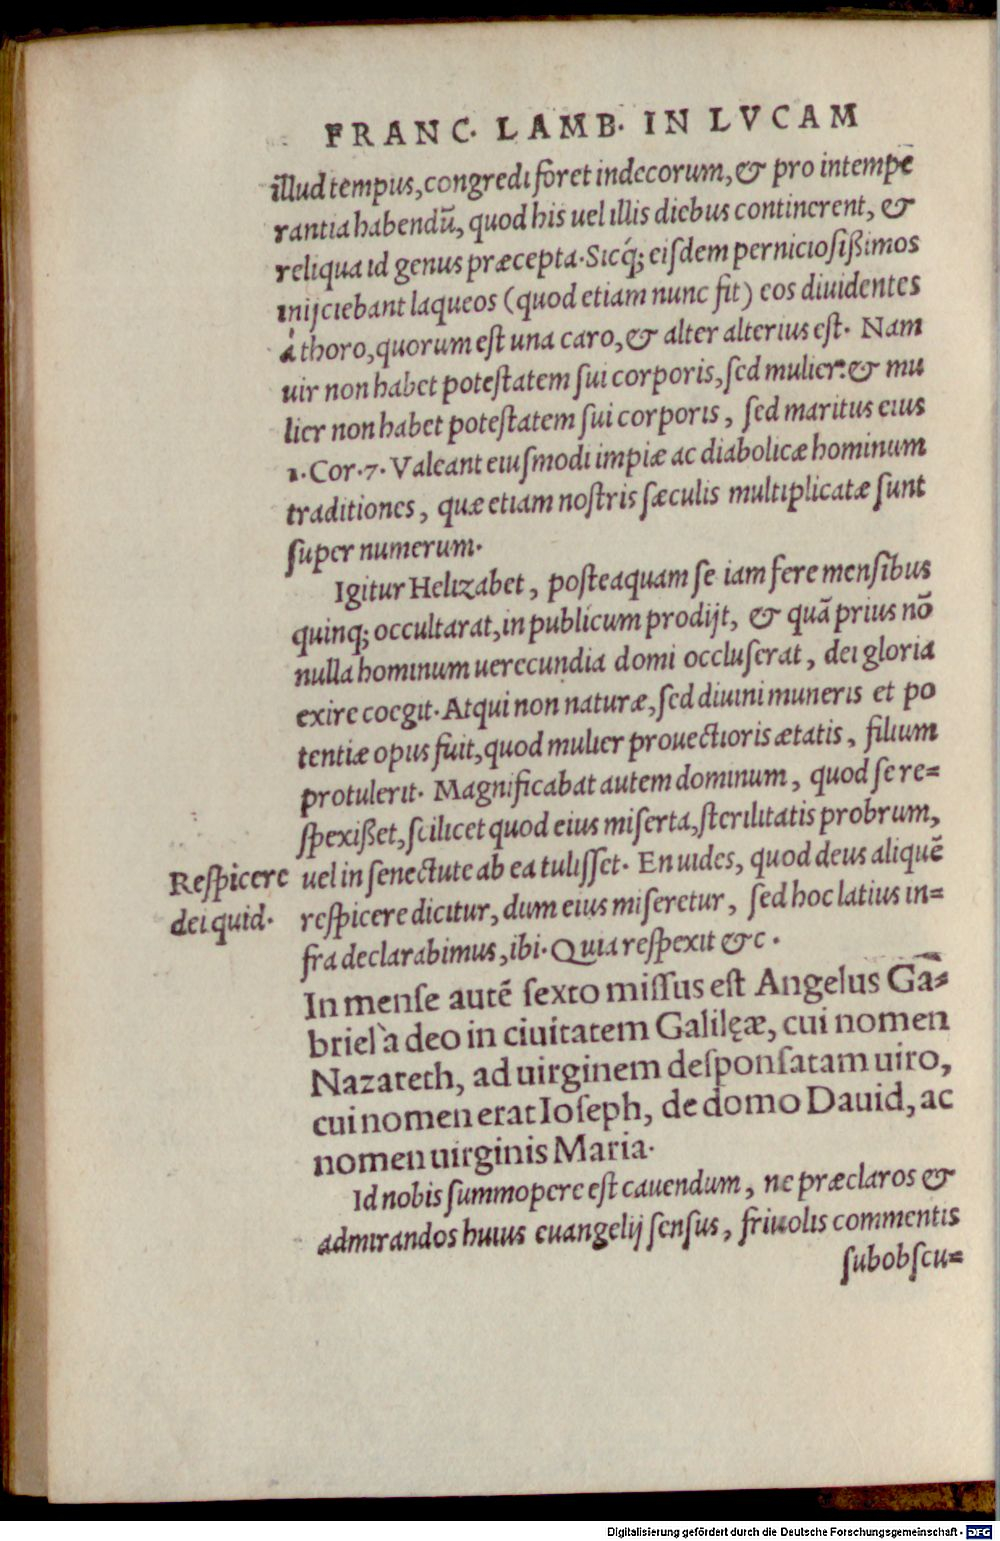 FRANC. LAMB. IN LVCAM
illud tempus, congredi foret indecorum, & pro intempe
rantia habendũ, quod his uel illis diebus continerent, &
reliqua id genus præcepta. Sicq́; eiſdem pernicioſißimos
inijciebant laqueos (quod etiam nunc fit) eos diuidentes
á thoro, quorum eſt una caro, & alter alterius eſt. Nam
uir non habet poteſtatem ſui corporis, ſed mulier: & mu
lier non habet poteſtatem ſui corporis, ſed maritus eius
1. Cor. 7. Valeant eiuſmodi impiæ ac diabolicæ hominum
traditiones, quæ etiam noſtris ſæculis multiplicatæ ſunt
ſuper numerum.
Igitur Helizabet, poſteaquam ſe iam fere menſibus
quinq; occultarat, in publicum prodijt, & quã prius nõ
nulla hominum uerecundia domi occluſerat, dei gloria
exire coegit. Atqui non naturæ, ſed diuini muneris et po
tentiæ opus fuit, quod mulier prouectioris ætatis, filium
protulerit. Magnificabat autem dominum, quod ſe re=
ſpexißet, ſcilicet quod eius miſerta, ſterilitatis probrum,
uel in ſenectute ab ea tuliſſet. En uides, quod deus aliquẽ
reſpicere dicitur, dum eius miſeretur, ſed hoc latius in=
fra declarabimus, ibi. Quia reſpexit &c.
Reſpicere
dei quid.
In menſe autẽ ſexto miſſus eſt Angelus Ga=
briel à deo in ciuitatem Galilęæ, cui nomen
Nazareth, ad uirginem deſponſatam uiro,
cui nomen erat Ioſeph, de domo Dauid, ac
nomen uirginis Maria.
Id nobis ſummopere eſt cauendum, ne præclaros &
admirandos huius euangelij ſenſus, friuolis commentis
ſubobſcu=
Digitalisierung gefördert durch die Deutsche Forschungsgemeinschaft - DFG